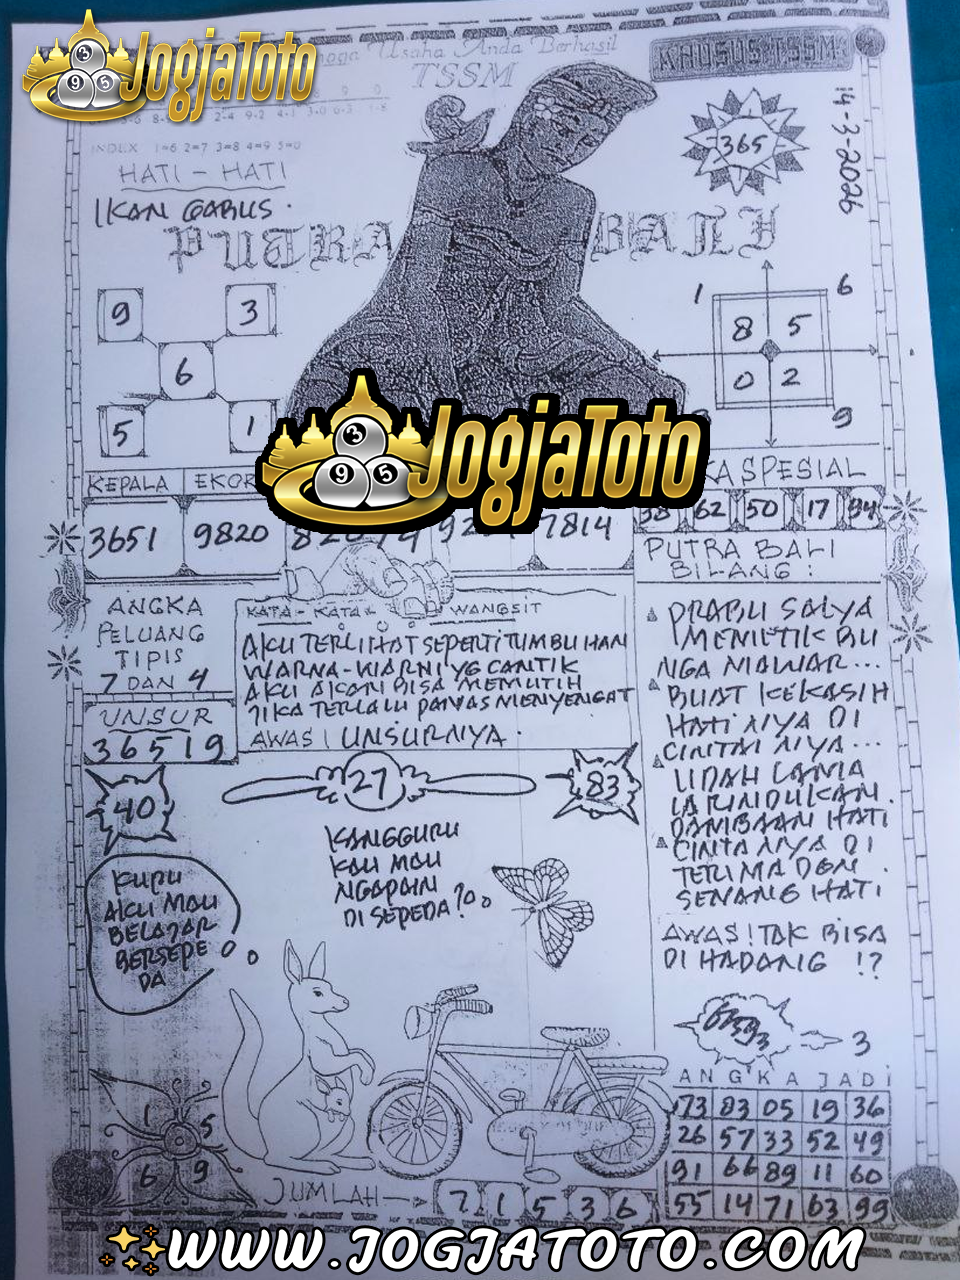 JogjaToto
Usaha Anda Berhasil
TSSM
KHUSUS TSSM
14-3-2026
365
INDEX 1=6 2=7 3=8 4=9 5=0
HATI - HATI
IKAN GABUS.
PUTRA BALI
9 3
6
5 1
1 6
8 5
0 2
9
JogjaToto
KEPALA EKOR
SPESIAL
3651 9820 7814
38 62 50 17 94
PUTRA BALI
BILANG :
ANGKA
PELUANG
TIPIS
7 DAN 4
UNSUR
36519
KATA - KATA WANGSIT
AKU TERLIHAT SEPERTI TUMBUHAN
WARNA-WARNI YG CANTIK
AKU AKAN BISA MEMUTIH
JIKA TERLALU PANAS MENYENGAT
AWAS! UNSURNYA.
PRABU SALYA
MEMETIK BU
NGA MAWAR...
BUAT KEKASIH
HATI NYA DI
CINTAI NYA...
UDAH LAMA
IA RINDUKAN.
DAMBAAN HATI
CINTA NYA DI
TERIMA DGN
SENANG HATI
AWAS! TAK BISA
DI HADANG !?
40
27
83
KANGGURU
KAU MAU
NGAPAIN
DI SEPEDA?
KUPU
AKU MAU
BELAJAR
BERSEPE
DA
3
ANGKA JADI
73 83 05 19 36
26 57 33 52 49
91 66 89 11 60
55 14 71 63 99
1 5
6 9
JUMLAH 7 1 5 3 6
WWW.JOGJATOTO.COM